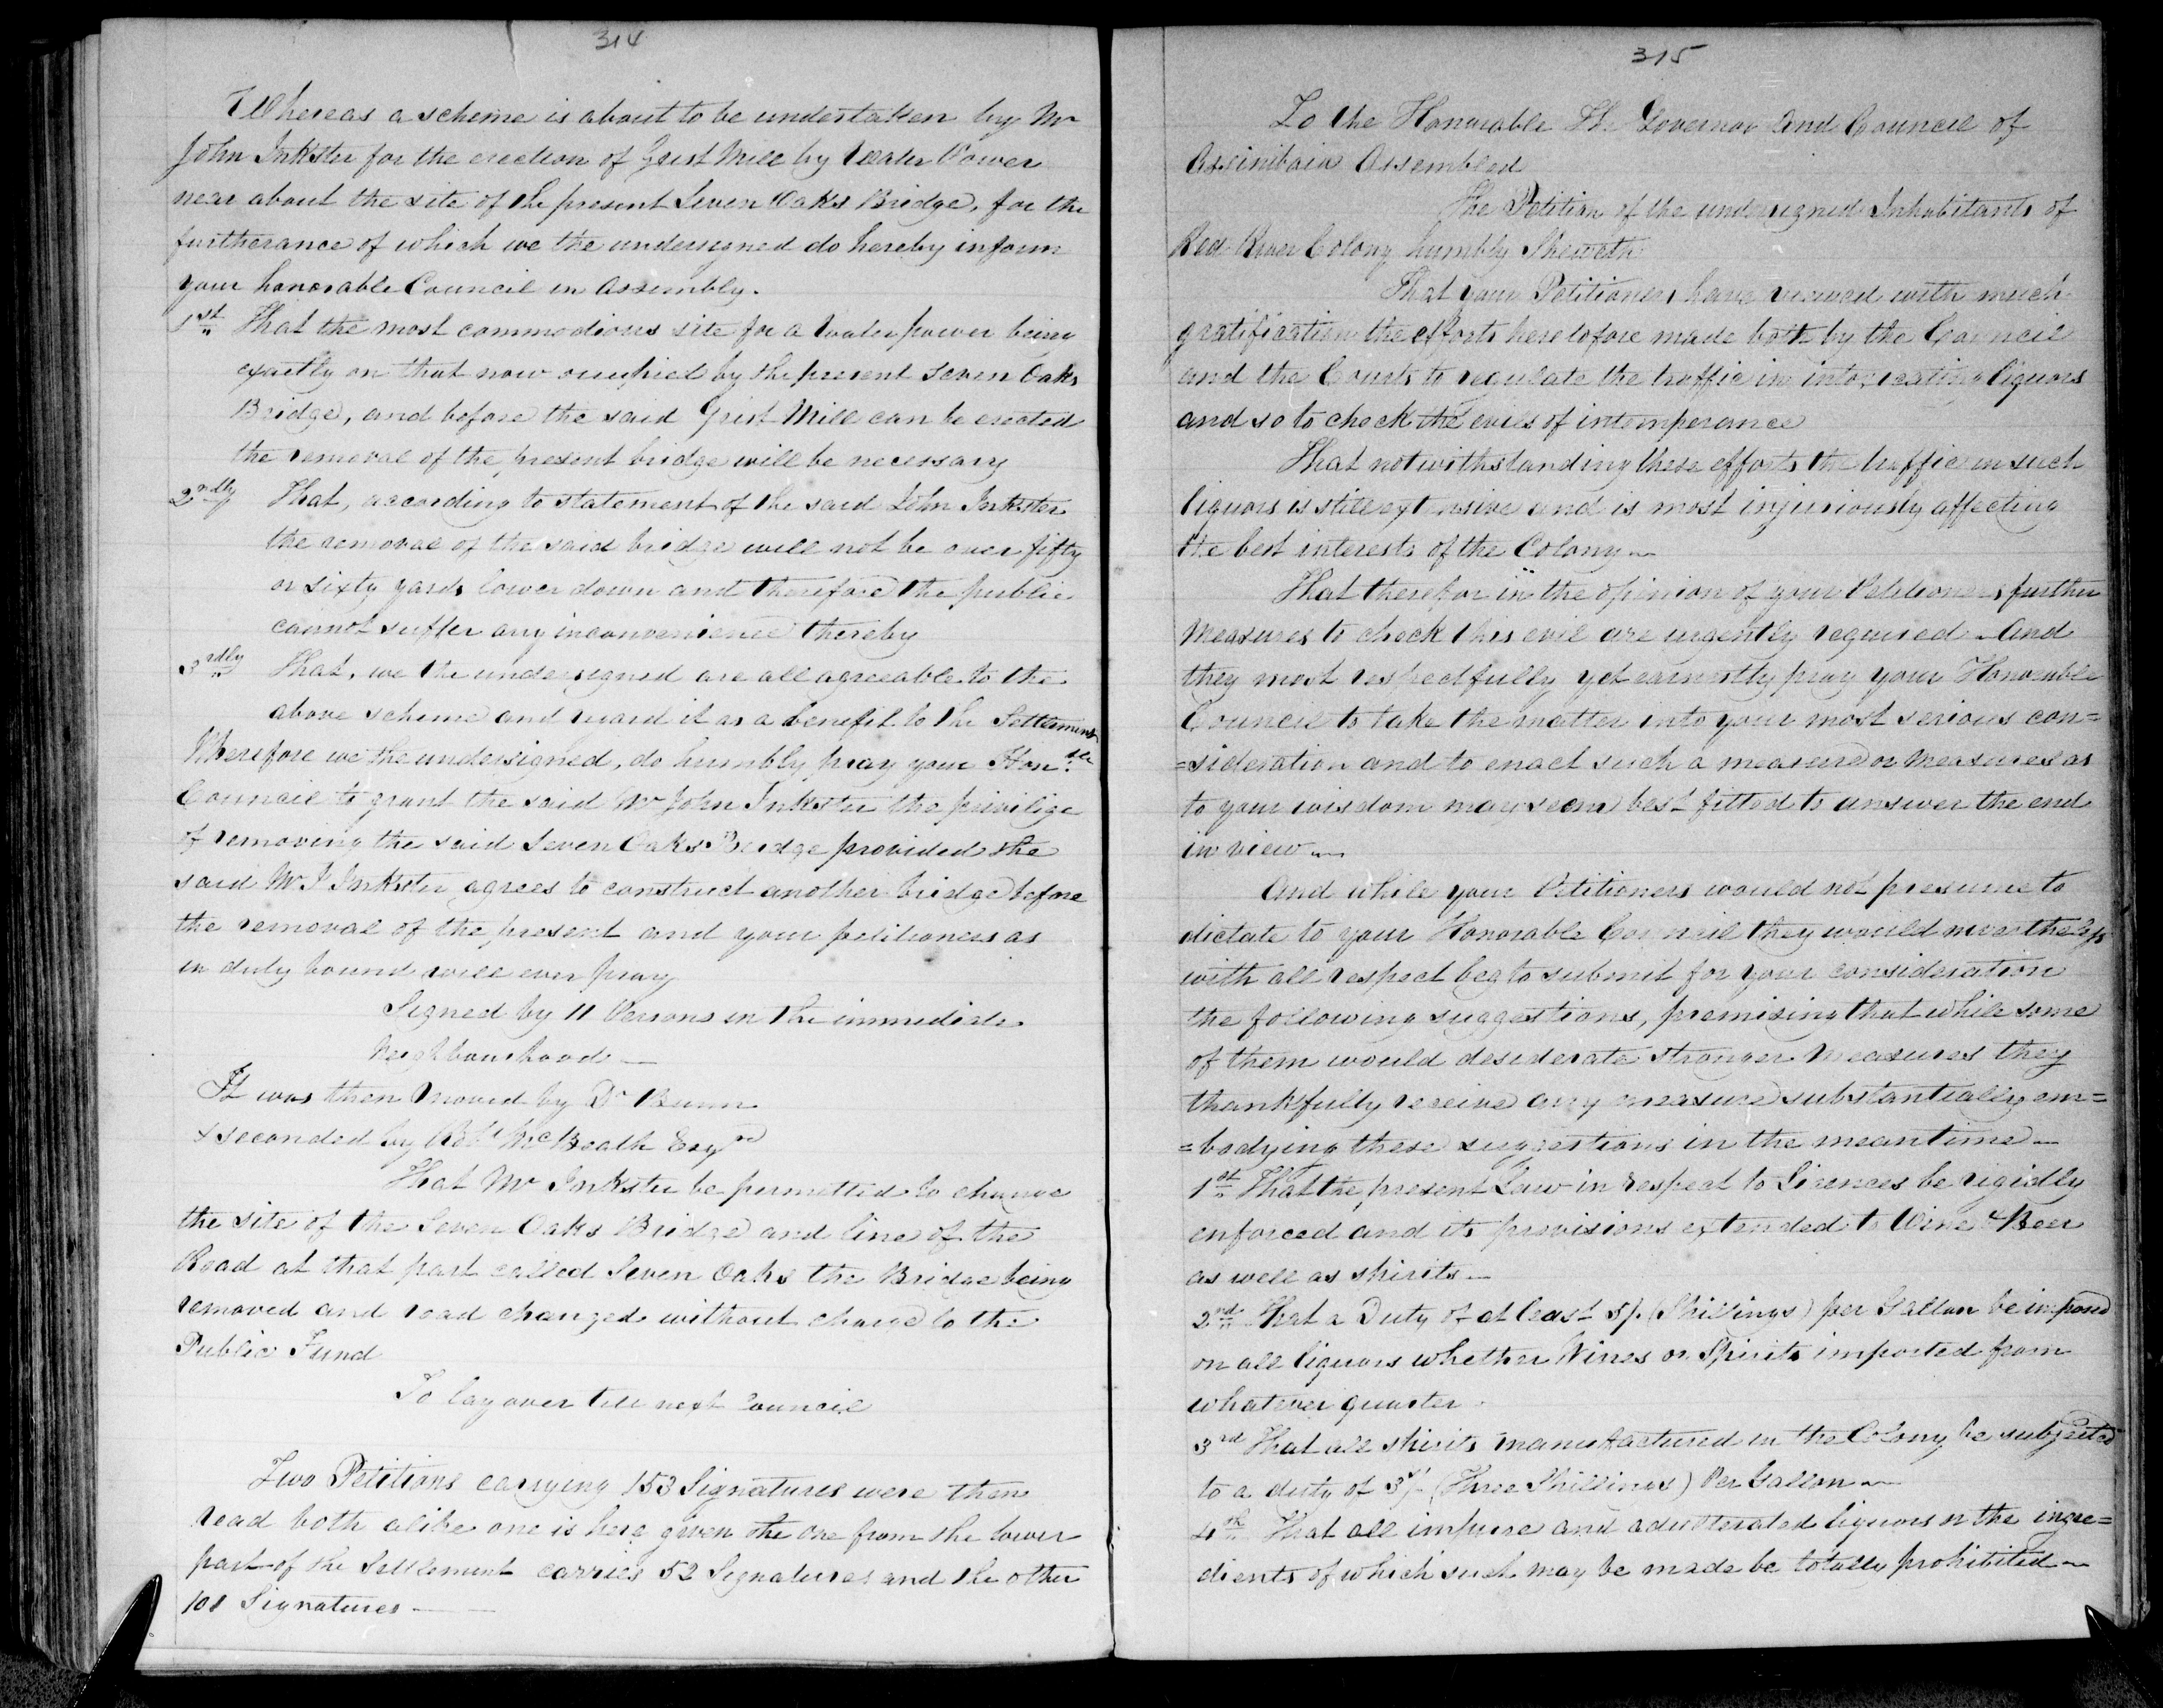 314
Whereas a scheme is about to be undertaken by Mr
John Inkster for the erection of Grist Mill by Water Power
near about the site of the present Seven Oaks Bridge, for the
furtherance of which we the undersigned do hereby inform
your honorable Council in Assembly.
1st That the most commodious site for a water power being
exactly on that now occupied by the present Seven Oaks
Bridge, and before the said Grist Mill can be erected
the removal of the present bridge will be necessary
2ndly That, according to statement of the said John Inkster
the removal of the said bridge will not be over fifty
or sixty yards lower down and therefore the public
cannot suffer any inconvenience thereby
3rdly That, we the undersigned are all agreeable to the
above scheme and regard it as a benefit to the Settlement
Wherefore we the undersigned, do humbly pray your Honble
Council to grant the said Mr John Inkster the privilige
of removing the said Seven Oaks Bridge provided the
said Mr J Inkster agrees to construct another bridge before
the removal of the present and your petitioners as
in duty bound will ever pray
Signed by 11 Persons in the immediate
Neighbourhood —
It was then moved by Dr Bunn
& seconded by Robt McBeath Esqre
That Mr Inkster be permitted to change
the site of the Seven Oaks Bridge and line of the
Road at that part called Seven Oaks the Bridge being
removed and road changed without charge to the
Public Fund
To lay over till next Council
Two Petitions carrying 153 Signatures were then
read both alike one is here given the one from the lower
part of the Settlement carries 52 Signatures and the other
101 Signatures —
315
To the Honorable The Governor and Council of
Assiniboia Assembled
The Petition of the undersigned Inhabitants of
Red River Colony humbly Sheweth
That your Petitioners have viewed with much
gratification the efforts heretofore made both by the Council
and the Courts to regulate the traffic in intoxicating liquors
and so to check the evils of intemperance
That notwithstanding these efforts the traffic in such
liquors is still extensive and is most injuriously affecting
the best interests of the Colony —
That therefor in the opinion of your Petitioners further
measures to check this evil are urgently required — And
they most respectfully yet earnestly pray your Honorable
Council to take the matter into your most serious con=
=sideration and to enact such a measure or measures as
to your wisdom may seem best fitted to answer the end
in view —
And while your Petitioners would not presume to
dictate to your Honorable Council they would nevertheless
with all respect beg to submit for your consideration
the following suggestions, premising that while some
of them would desiderate stronger measures they
thankfully receive any measure substantially em=
=bodying these suggestions in the meantime —
1st That the present Law in respect to Licences be rigidly
enforced and its provisions extended to Wine & Beer
as well as spirits —
2nd That a Duty of at least 5/. (Shillings) per Gallon be imposed
on all liquors whether Wines or Spirits imported from
whatever quarter.
3rd That all spirits manufactured in the Colony be subjected
to a duty of 3/- (Three Shillings) Per Gallon —
4th That all impure and adulterated liquors or the ingre=
dients of which such may be made be totally prohibited —